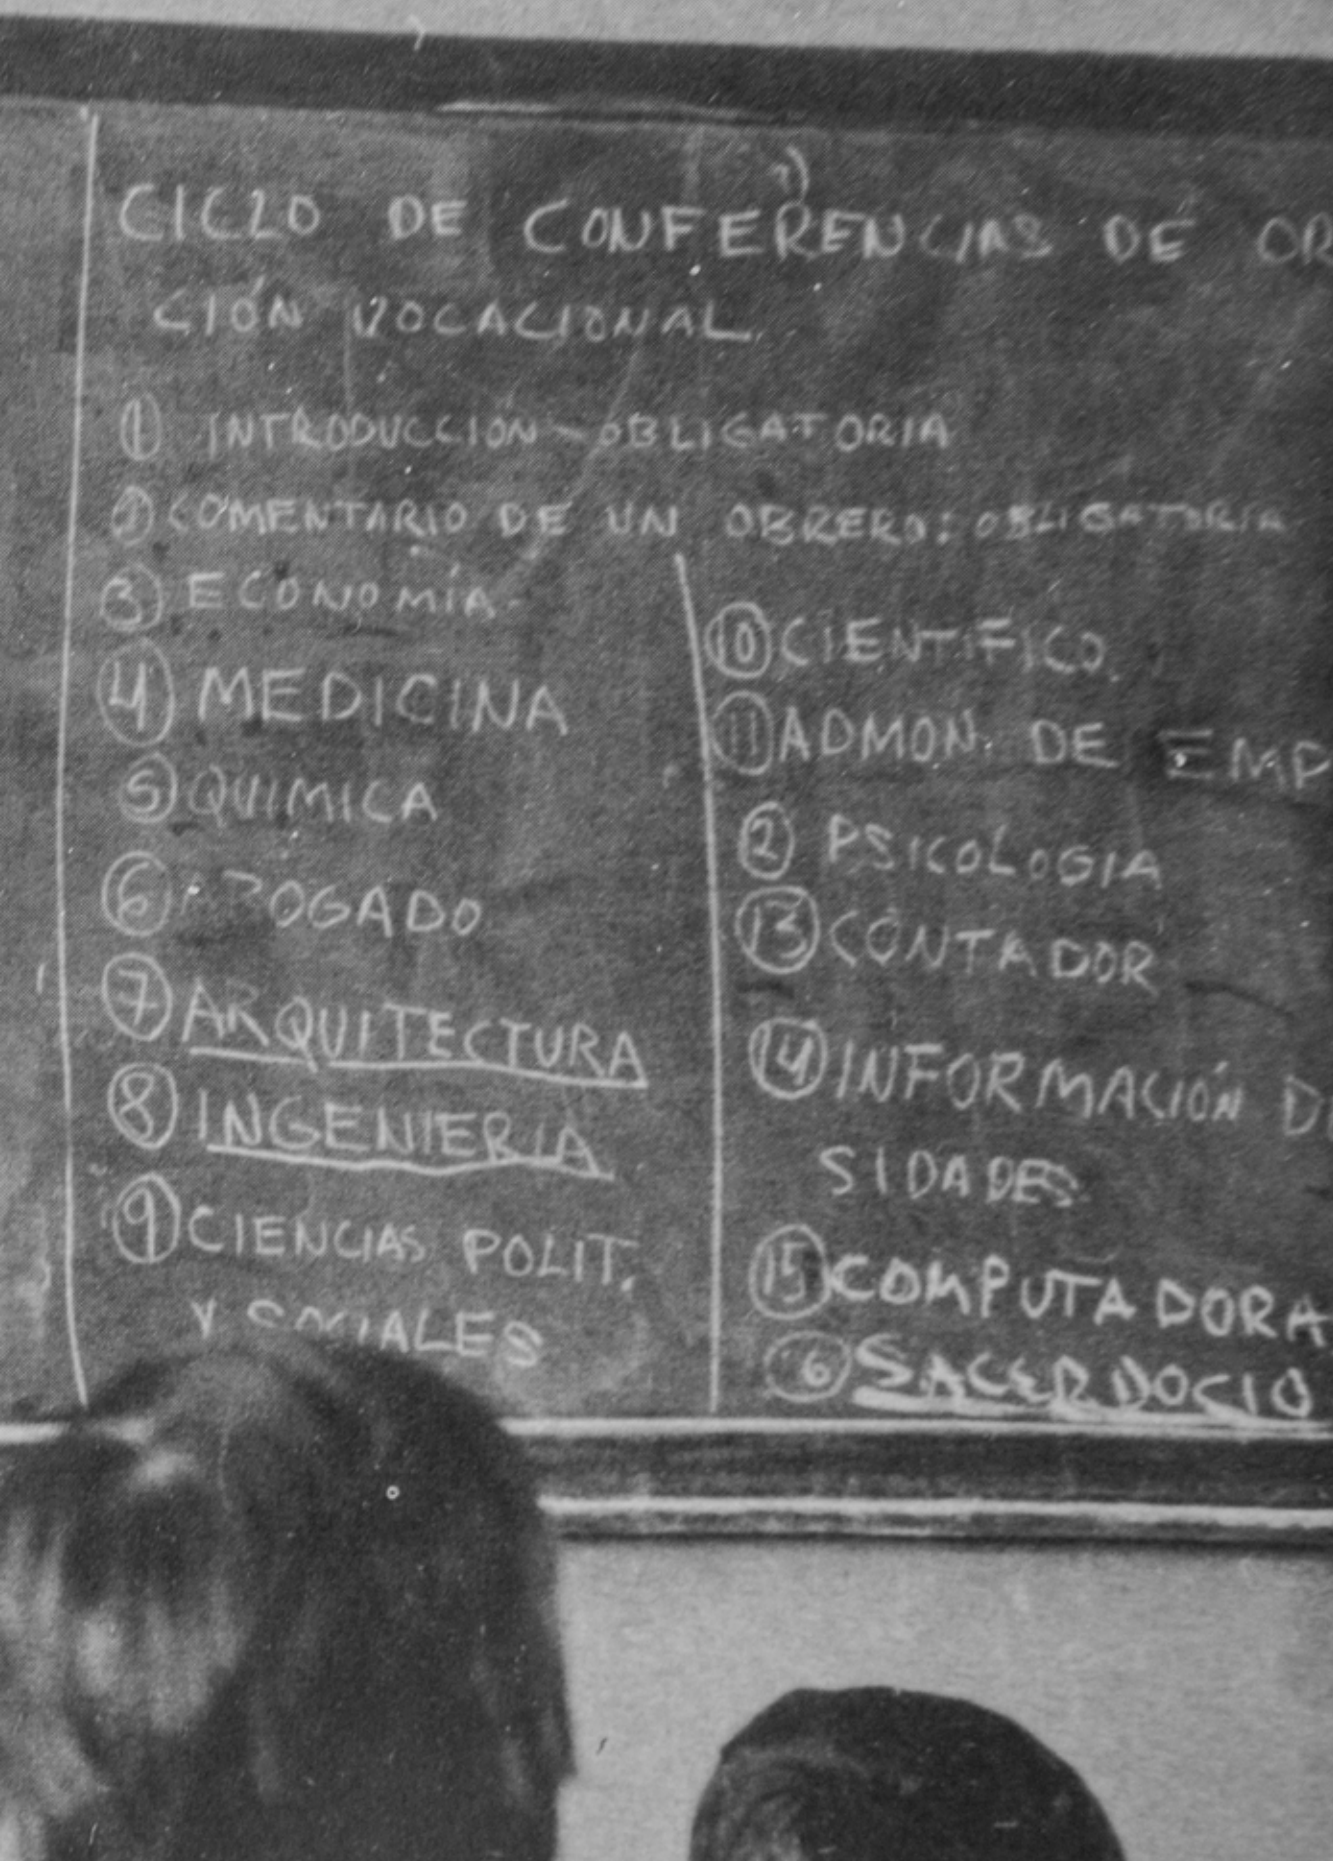 CICLO DE CONFERENCIAS DE OR
CIÓN VOCACIONAL.
① INTRODUCCION - OBLIGATORIA
② COMENTARIO DE UN OBRERO: OBLIGATORIA
③ ECONOMÍA.
④ MEDICINA
⑤ QUIMICA
⑥ OGADO
⑦ ARQUITECTURA
⑧ INGENIERIA
⑨ CIENCIAS POLIT.
Y SOCIALES
⑩ CIENTIFICO.
⑪ ADMON. DE EMP
② PSICOLOGIA
⑬ CONTADOR
⑭ INFORMACIÓN DE
SIDADES
⑮ COMPUTADORA
⑥ SACERDOCIO